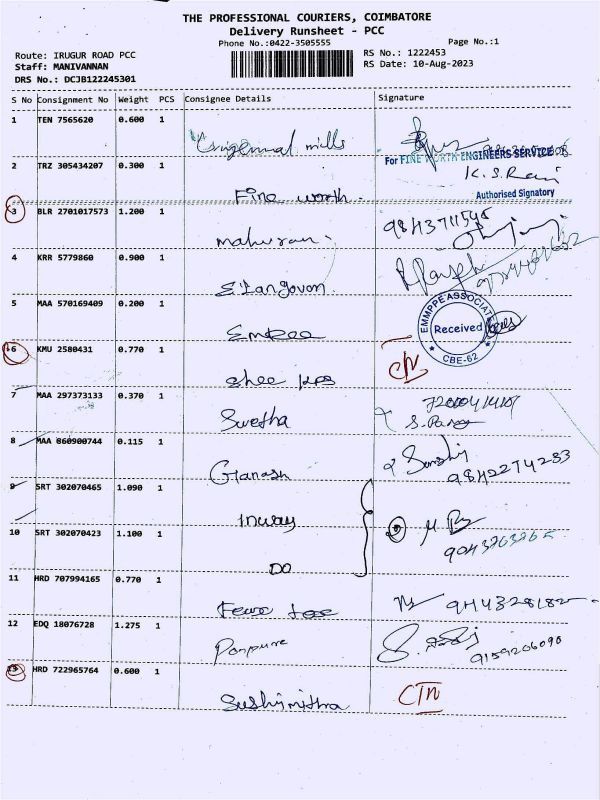 THE PROFESSIONAL COURIERS, COIMBATORE
Delivery Runsheet - PCC
Phone No.:0422-3505555
Page No.:1
Route: IRUGUR ROAD PCC
RS No.: 1222453
Staff: MANIVANNAN
RS Date: 10-Aug-2023
DRS No.: DCJB122245301
S No Consignment No Weight PCS Consignee Details Signature
1 TEN 7565620 0.600 1
mills
For FINE WORTH ENGINEERS SERVICE
2 TRZ 305434207 0.300 1
K.S.Rani
Fine worth.
Authorised Signatory
3 BLR 2701017573 1.200 1
9843711545
4 KRR 5779860 0.900 1
Elangovan
5 MAA 570169409 0.200 1
EMMPPE ASSOCIATE
Received
CBE-62
Empee
6 KMU 2580431 0.770 1
shee
7 MAA 297373133 0.370 1
Swetha
8 MAA 860900744 0.115 1
Ganash
9842274233
9 SRT 302070465 1.090 1
Inway
10 SRT 302070423 1.100 1
DO
11 HRD 707994165 0.770 1
12 EDQ 18076728 1.275 1
Panpure
9159206090
13 HRD 722965764 0.600 1
CTN
Sushimithra